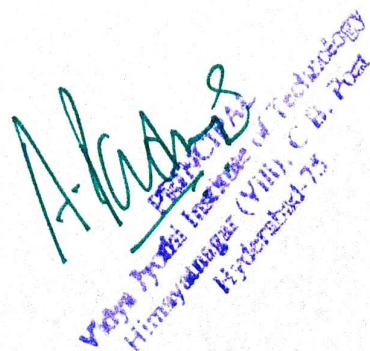 PRINCIPAL
Vidya Jyothi Institute of Technology
Himayatnagar (Vill), C.B. Post
Hyderabad-75